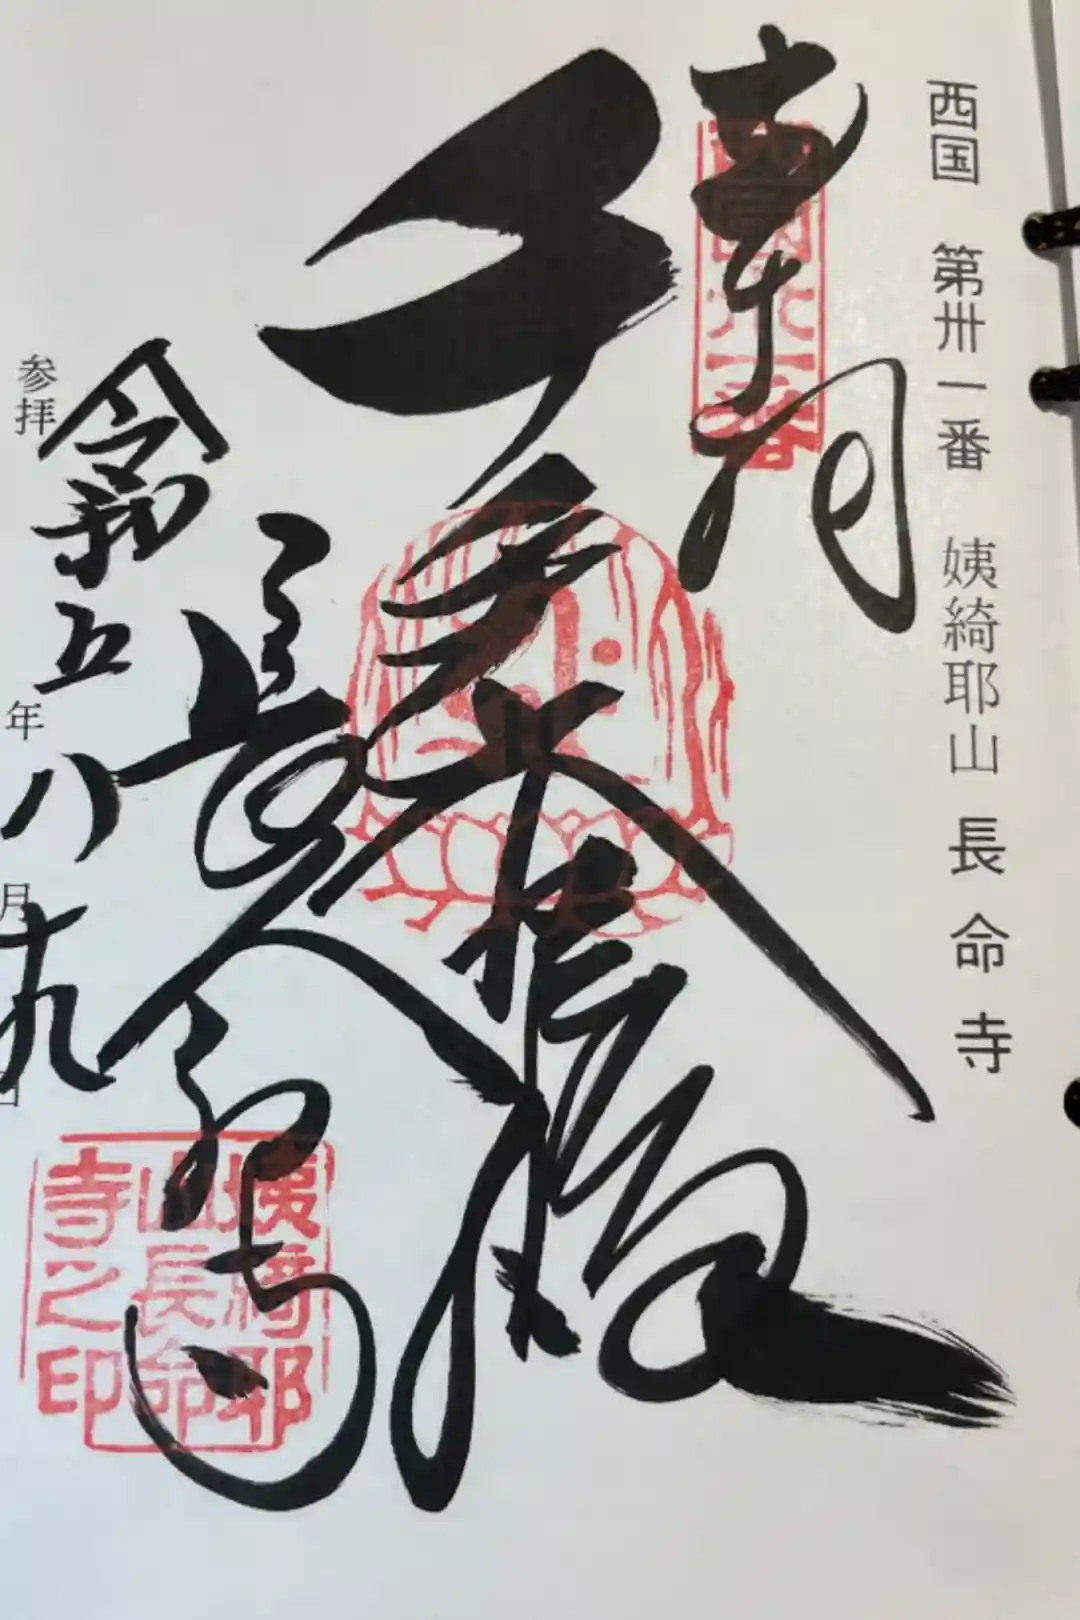 西国 第卅一番 姨綺耶山 長命寺
奉拝
西國卅一番
千手大悲殿
長命寺
姨綺耶
山長命
寺之印
参拝 令和五年八月十九日